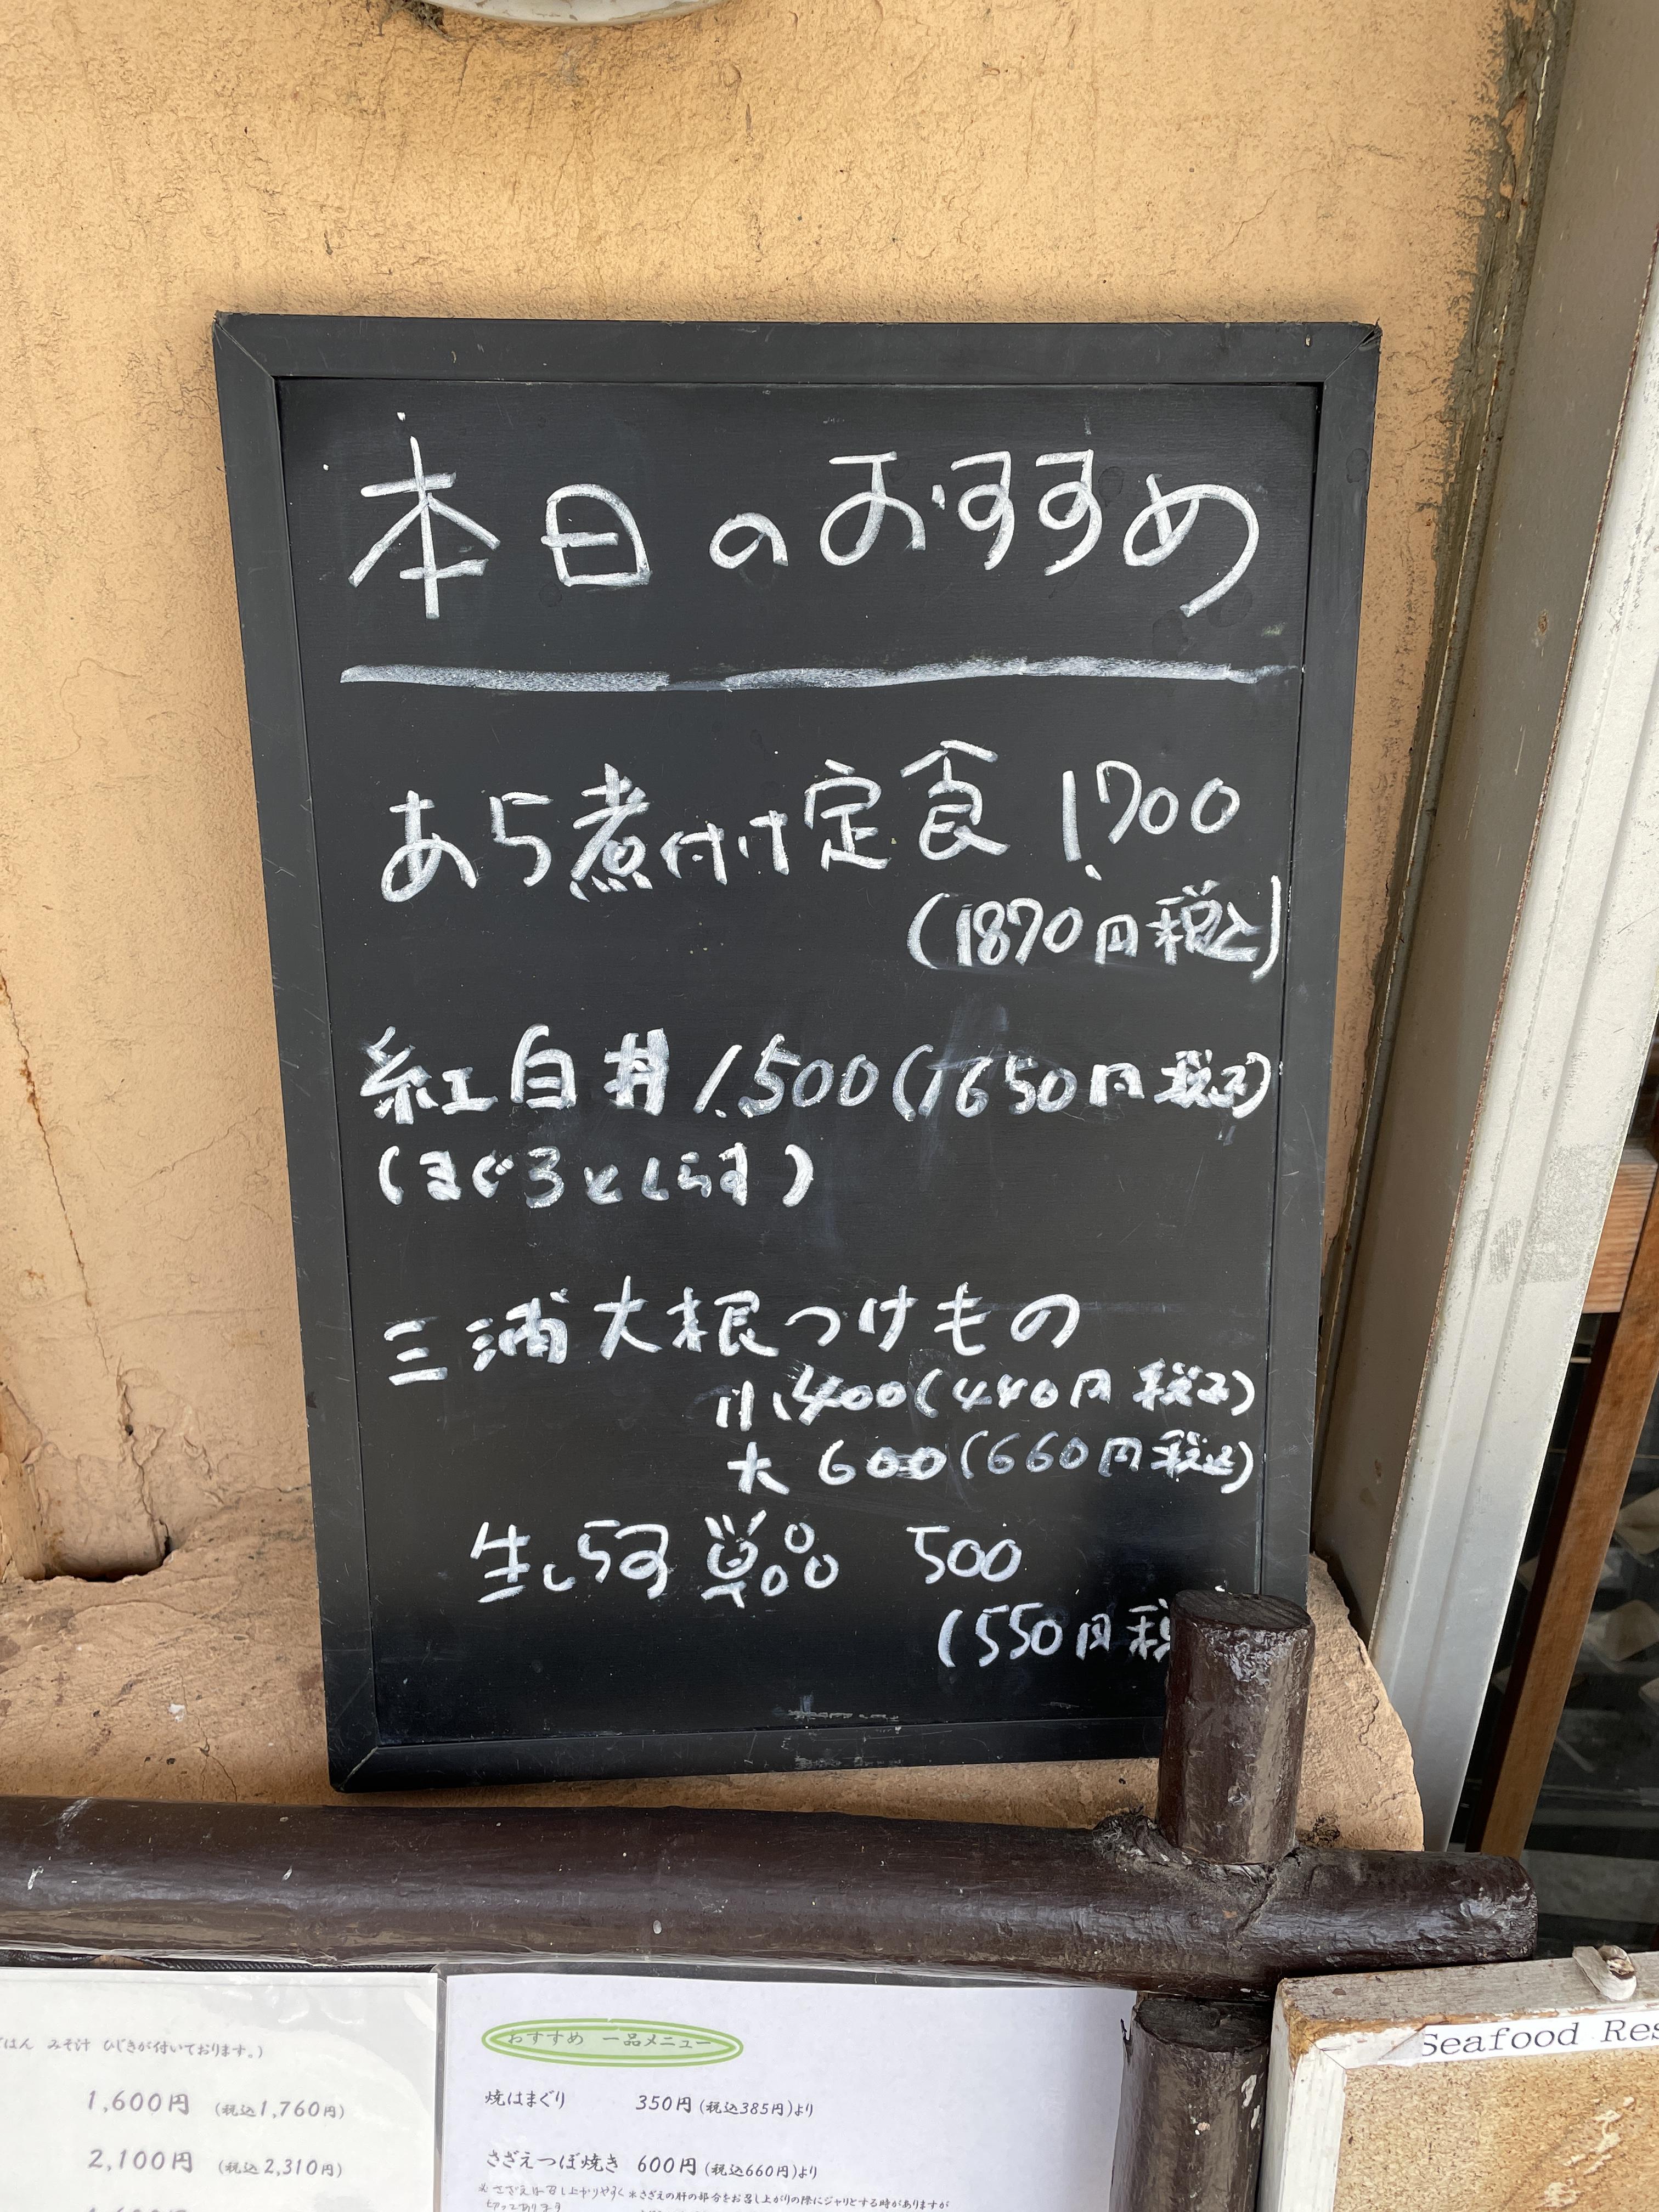 本日のおすすめ
あら煮付け定食 1,700
(1870円税込)
紅白丼 1,500(1650円税込)
(まぐろとしらす)
三浦大根つけもの
小400(440円税込)
大 600(660円税込)
生しらす単品 500
(550円税
ごはん みそ汁 ひじきが付いております。)
1,600円 (税込1,760円)
2,100円 (税込2,310円)
おすすめ 一品メニュー
焼はまぐり 350円(税込385円)より
さざえつぼ焼き 600円(税込660円)より
※さざえは召し上がりやすく ※さざえの肝の部分をお召し上がりの際にジャリとする時がありますが
切ってあります
Seafood Res